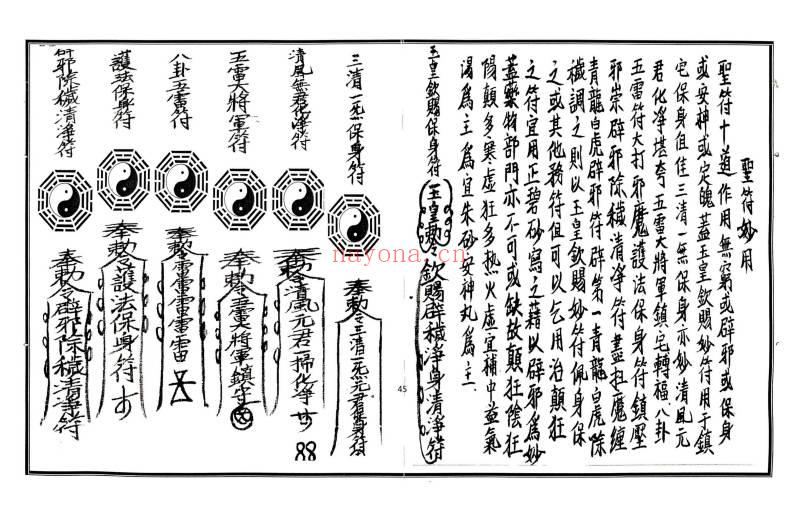 聖符妙用
聖符十道作用無窮或辟邪或保身
或安神或定魄蓋玉皇欽賜妙符用于鎮
宅保身值佳三清一炁保身亦妙清風元
君化淨堪夸五雷大將軍鎮宅轉福八卦
五雷符大打邪魔護法保身符鎮壓
邪祟辟邪除穢清淨符盡拒魔纏
青龍白虎辟邪符辟第一青龍白虎除
穢調之則以玉皇欽賜妙符佩身保
之或其他務符但可以乞用治顛狂
之符宜用正碧砂寫之藉以辟邪為妙
蓋藥物部門亦不可或缺故顛狂陰狂
陽顛多寒虛狂多熱火虛宜補中益氣
湯為主為宜朱砂安神丸為主
玉皇欽賜保身符
玉皇勅令欽賜辟穢淨身清淨符
45
三清一炁保身符
奉勅令三清一炁元君
清風元君化淨符
奉勅令清風元君一掃化淨
五雷大將軍符
奉勅令五雷大將軍鎮宅
八卦五雷符
奉勅令雷雷雷雷雷
護法保身符
奉勅令護法保身符
辟邪除穢清淨符
奉勅令辟邪除穢清淨符
nayona.cn